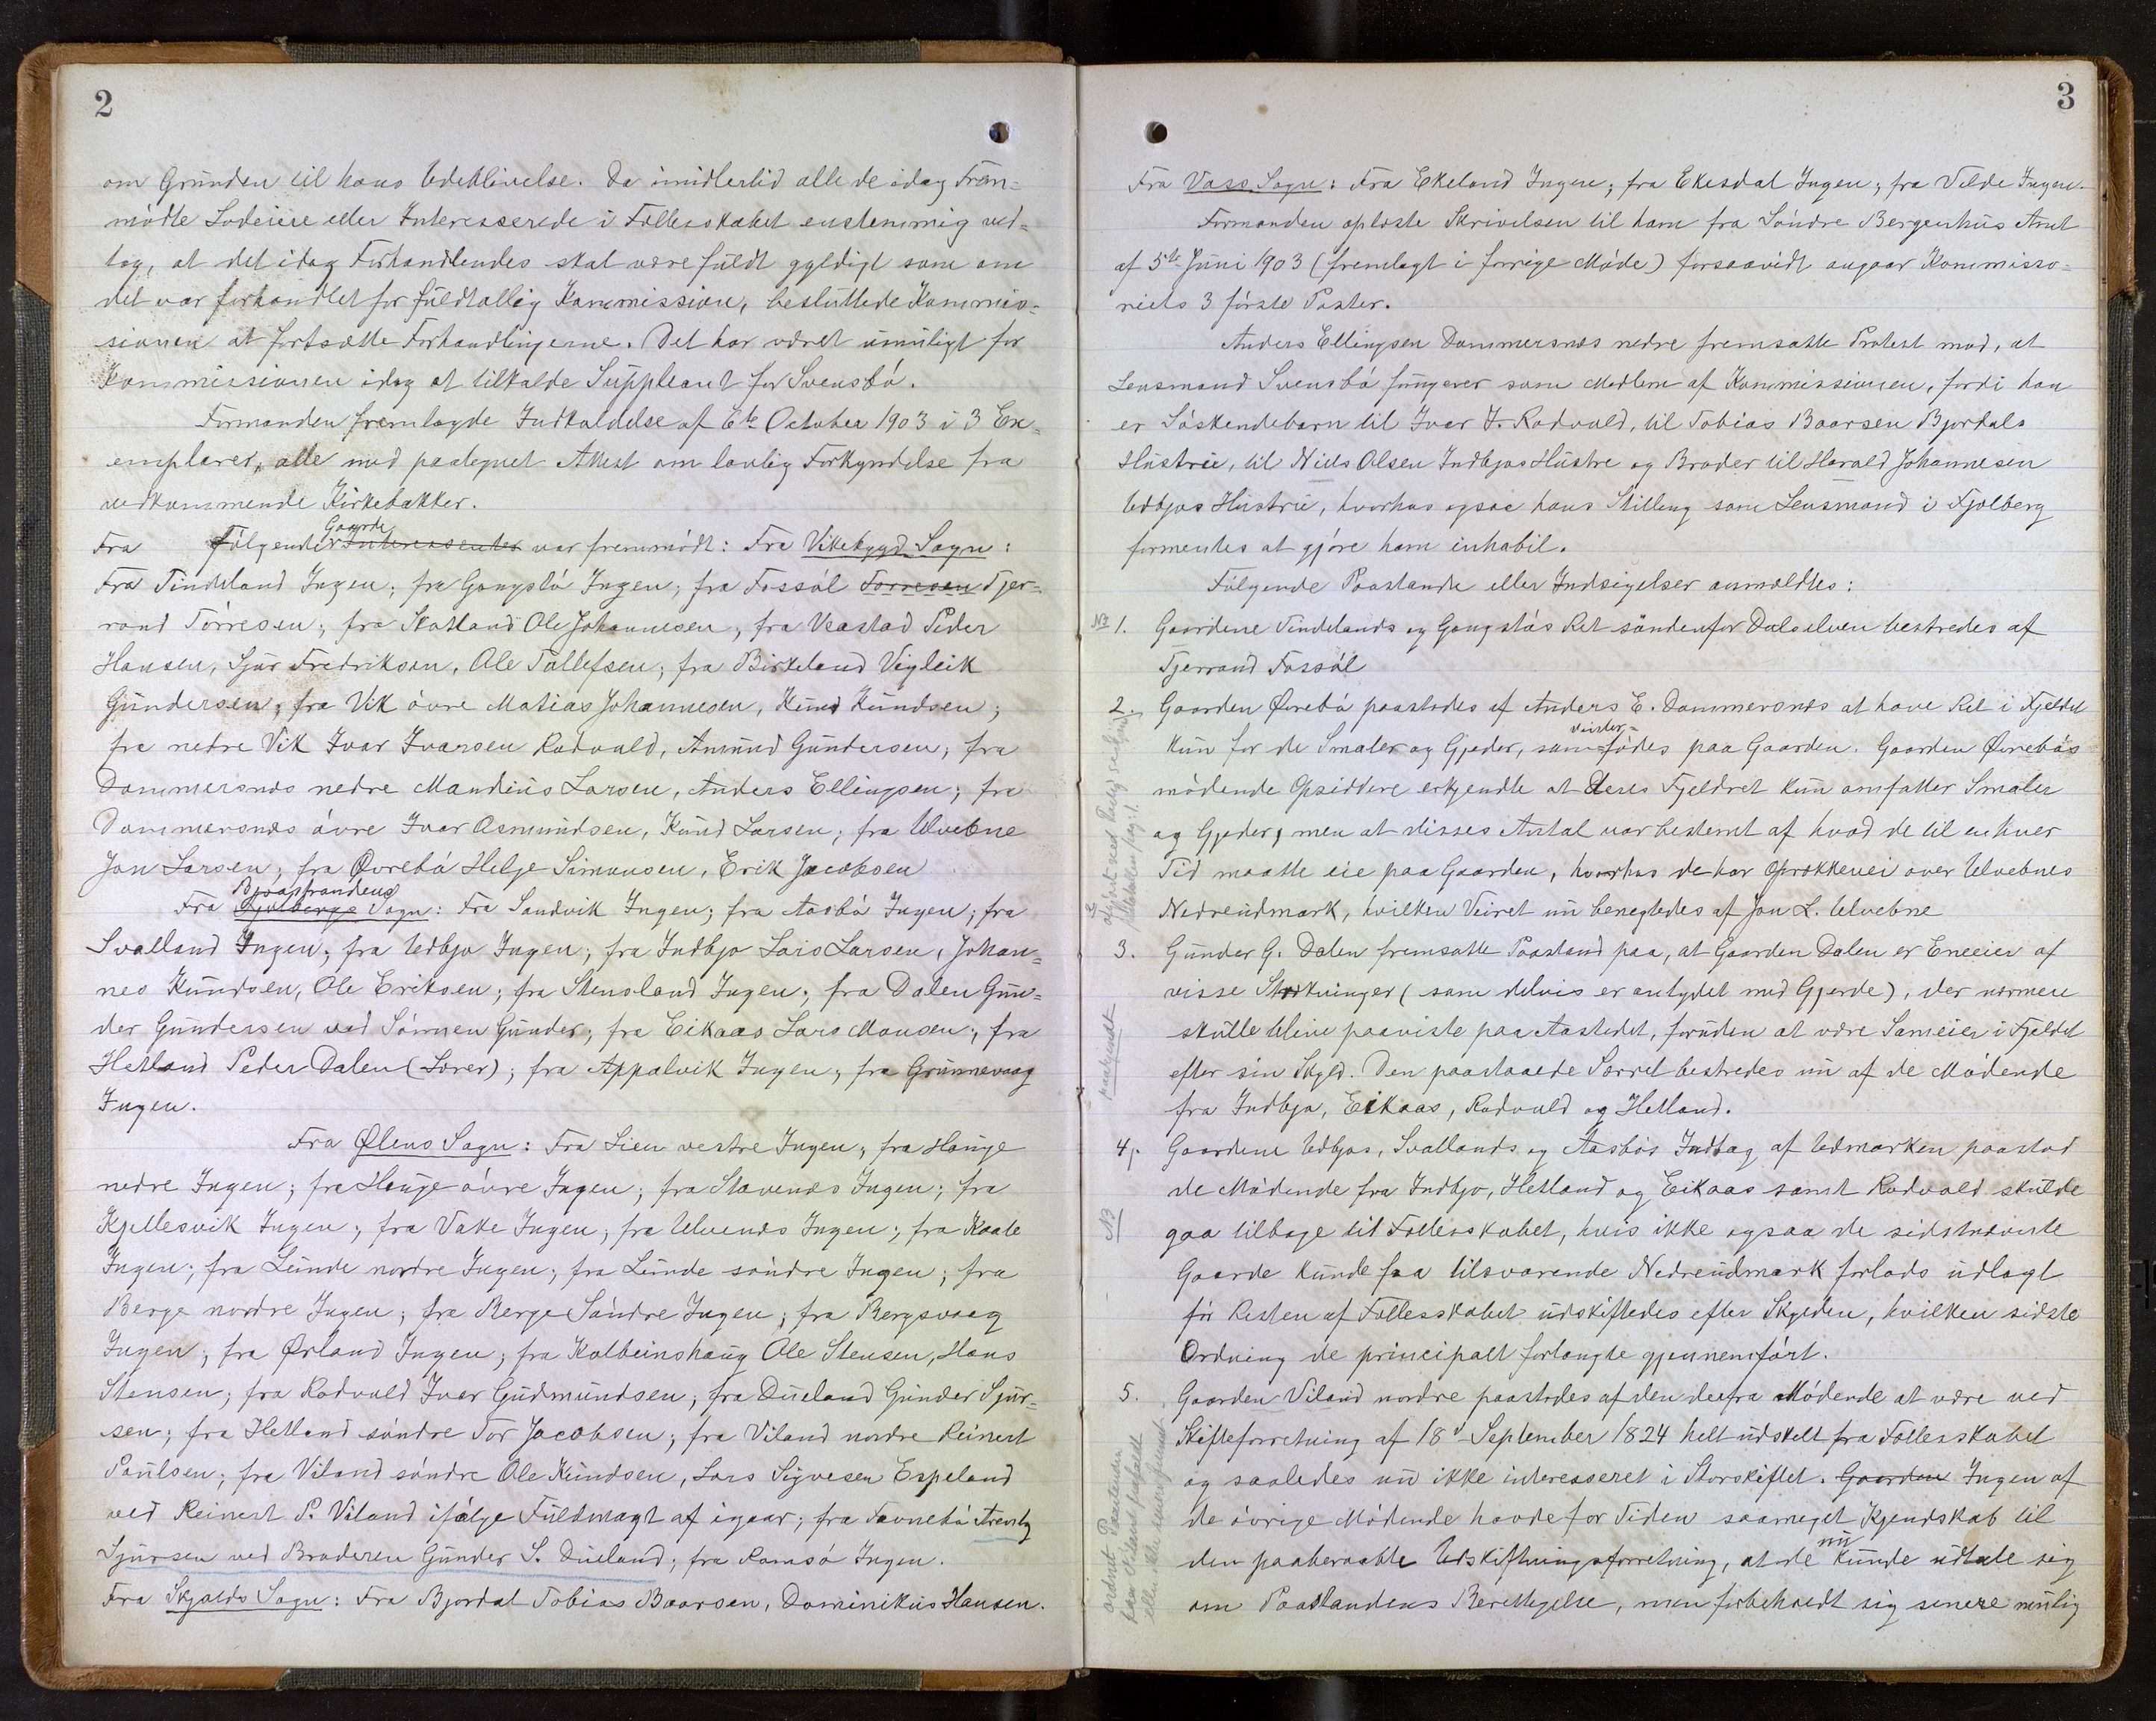 2
om Grunden til hans Udeblivelse. Da imidlertid alle de idag Frem-
mødte Lodeiere eller Interesserede i Fællesskabet enstemmig ved-
tog, at det idag Forhandlendes skal være fuldt gyldigt som om
det var forhandlet for fuldtallig Kommission, besluttede Kommis-
sionen at fortsætte Forhandlingerne. Det har været umuligt for
Kommissionen idag at tilkalde Suppleant for Svensbø.
Formanden fremlagde Indkaldelse af 6te October 1903 i 3 Ex-
emplarer, alle med paategnet Attest om lovlig Forkyndelse fra
vedkommende Kirkebakker.
Fra Følgende Gaarde Interessenter var fremmødt: Fra Vikebygd Sogn:
Fra Tindeland Ingen; fra Gangstø Ingen; fra Fossøl Torresen Tjer-
rand Tørresen; fra Skatland Ole Johannesen; fra Veastad Peder
Hansen, Sjur Fredrikson, Ole Tollefsen; fra Birkeland Vigleik
Gundersen; fra Vik øvre Matias Johannesen, Knud Knudsen;
fra nedre Vik Ivar Ivarsen Rødvald, Amund Gundersen; fra
Dommersnæs nedre Mandius Larsen, Anders Ellingsen; fra
Dommersnæs øvre Ivar Asmundsen, Knud Larsen; fra Ulvebne
Jon Larsen; fra Øvrebø Helge Simonsen, Erik Jacobsen
Fra Fjelberge Bjoastrandens Sogn: Fra Sandvik Ingen; fra Aasbø Ingen; fra
Svalland Ingen; fra Udbjo Ingen; fra Indbjo Lars Larsen, Johan-
nes Knudsen, Ole Eriksen; fra Stensland Ingen; fra Dalen Gun-
der Gundersen ved Sønnen Gunder; fra Eikaas Lars Monsen; fra
Hetland Peder Dalen (Lærer); fra Appalvik Ingen; fra Grunnevaag
Ingen.
Fra Ølens Sogn: Fra Lien vestre Ingen; fra Hauge
nedre Ingen; fra Hauge øvre Ingen; fra Stavenæs Ingen; fra
Kjellesvik Ingen; fra Vake Ingen; fra Ulvenæs Ingen; fra Kaate
Ingen; fra Lunde nordre Ingen; fra Lunde søndre Ingen; fra
Berge nordre Ingen; fra Berge Søndre Ingen; fra Bergsvaag
Ingen; fra Ørland Ingen; fra Kolbeinshaug Ole Stensen, Hans
Stensen; fra Rødvald Ivar Gudmundsen; fra Dueland Gunder Sjur-
sen; fra Hetland søndre Tor Jacobsen; fra Viland nordre Reinert
Poulsen; fra Viland søndre Ole Knudsen, Lars Sigvesen Espeland
ved Reinert P. Viland ifølge Fuldmagt af igaar; fra Favnebø
Sjursen ved Broderen Gunder S. Dueland; fra Ramsø Ingen.
Fra Skjolds Sogn: Fra Bjordal Tobias Baarsen, Dominikus Hansen.
3
Fra Vass Sogn: Fra Ekeland Ingen; fra Ekesdal Ingen; fra Velde Ingen.
Formanden oplæste Skrivelsen til ham fra Søndre Bergenhus Amt
af 5te Juni 1903 (fremlagt i forrige Møde) forsaavidt angaar Kommisso-
riets 3 første Poster.
Anders Ellingsen Dommersnæs nedre fremsatte Protest mod, at
Lensmand Svensbø fungerer som Medlem af Kommissionen, fordi han
er Søskendebarn til Ivar J. Rødvald, til Tobias Baarsen Bjordals
Hustrue, til Niels Olsen Indbjos Hustre og Broder til Harald Johannesen
Udbjos Hustrue, hvorhos ogsaa hans Stilling som Lensmand i Fjelberg
formentes at gjøre ham inhabil.
Følgende Paastande eller Indsigelser anmeldtes:
NB 1. Gaardene Tindelands og Gangstøs Ret søndenfor Dalselven bestredes af
Tjerrand Fossøl
2. Gaarden Øvrebø paastodes af Anders E. Dommersnæs at have Ret i Fjeldet
kun for de Smaler og Gjeder, som vinter-fødes paa Gaarden. Gaarden Øvrebøs
mødende Opsiddere erkjendte at deres Fjeldret kun omfatter Smaler
og Gjeder, men at disses Antal var bestemt af hvad de til enhver
Tid maatte eie paa Gaarden, hvorhos de har Oprækkevei over Ulvebnes
Nedreudmark, hvilken Veiret nu benegtedes af Jon L. Ulvebne
3. Gunder G. Dalen fremsatte Paastand paa, at Gaarden Dalen er Eneeier af
visse Strækninger (som delvis er antydet med Gjerde), der nærmere
skulle blive paaviste paa Aastedet, foruden at være Sameier i Fjeldet
efter sin Skyld. Den paastaaede Særret bestredes nu af de Mødende
fra Indbjo, Eikaas, Rødvald og Hetland.
paakjendt
4. Gaardene Udbjos, Svallands og Aasbøs Indtag af Udmarken paastod
de Mødende fra Indbjo, Hetland og Eikaas samt Rødvald skulde
NB gaa tilbage til Fællesskabet, hvis ikke ogsaa de sidstnævnte
Gaarde kunde faa tilsvarende Nedreudmark forlods udlagt
før Resten af Fællesskabet udskiftedes efter Skylden, hvilken sidste
Ordning de principalt forlangte gjennemført.
5. Gaarden Viland nordre paastodes af den derfra Mødende at være ved
Skifteforretning af 18de September 1824 helt udskilt fra Fællesskabet
og saaledes nu ikke interesseret i Storskiftet. Gaarden Ingen af
de øvrige Mødende havde for Tiden saameget Kjendskab til
den paaberaabte Udskiftningsforretning, at de nu kunde udtale sig
om Paastandens Berettigelse, men forbeholdt sig senere mulig